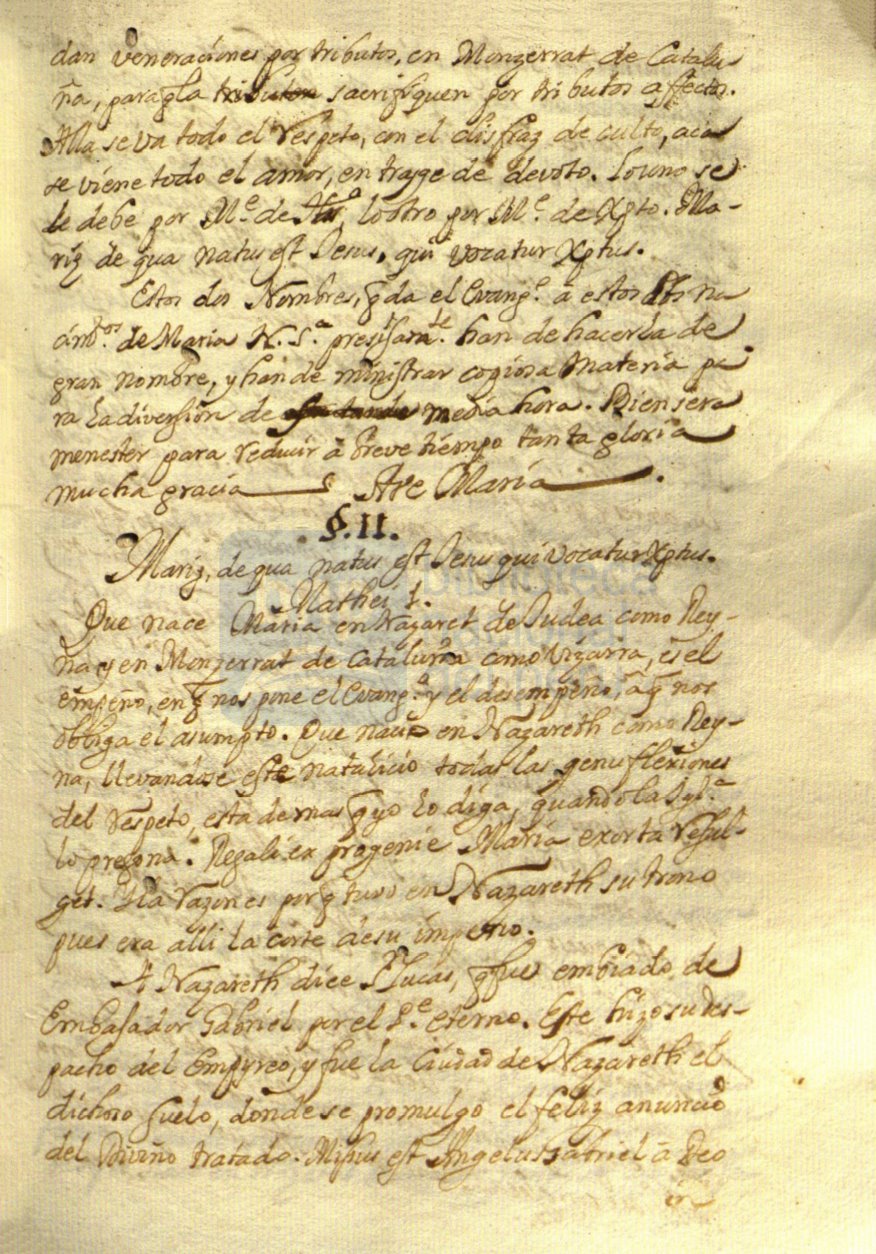 dan veneraciones por tributos, en Monzerrat de Catalu
ña, para q̃ la tributen sacrifiquen por tributos affectos.
Alla se va todo el respeto, con el disfraz de culto, aca
se viene todo el amor, en trage de devoto. Lo uno se
le debe por M.e de lo otro por M.e de Xpto. Ma-
riæ de qua natus est Jesus, qui vocatur Xptus.
Estos dos Nombres, q̃ da el Evang.o a estos dos na
cim.tos de Maria N. S.a presisam.te han de hacerla de
gran nombre, y han de ministrar copiosa materia pa
ra la diversion de media hora. Bien sera
menester para reducir a breve tiempo tanta gloria
mucha gracia Ave Maria.
§. II.
Mariæ, de qua natus est Jesus qui vocatur Xptus.
Mathei 1.
Que nace Maria en Nazaret de Judea como Rey-
na y en Monzerrat de Cataluña como Vizarra, es el
empeño, en q̃ nos pone el Evang.o y el desempeño, a q̃ nos
obliga el asumpto. Que nace en Nazareth como Rey-
na, llevandose este natalicio todas las genuflexiones
del respeto, esta demas q̃ yo lo diga, quando la Igl.a
lo pregona. Regali ex progenie Maria exorta reful-
get. Y la razon es por q̃ tuvo en Nazareth su trono
pues era alli la corte de su imperio.
A Nazareth dice S. Lucas, q̃ fue embiado de
Embasador Gabriel por el P.e eterno. Este hizo su des-
pacho del Empyreo, y fue la Ciudad de Nazareth el
dichoso suelo, donde se promulgo el feliz anuncio
del Divino tratado. Missus est Angelus Gabriel à Deo
in
biblioteca
nacional